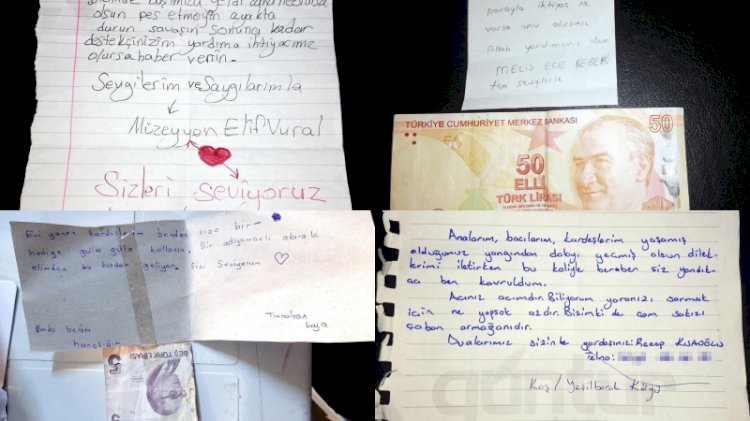 olsun pes etmeyin ayakta
durun savaşın sonuna kadar
destekçinizim yardıma ihtiyacınız
olursa haber verin.
Sevgilerim ve Saygılarımla
Müzeyyen Elif Vural
Sizleri seviyoruz
parayla ihtiyaç ne
varsa onu alırsınız
Allah yardımcınız olsun
MELİS ECE BEBER
TÜRKİYE CUMHURİYET MERKEZ BANKASI
50
50
ELLİ
TÜRK LİRASI
Evi yanan kardeşlerim benden size bir
hediye güle güle kullanın. Bir adıyamanlı olarak
elimden bu kadar geliyor sizi Seviyorum
Buda benim
harçlığım
5
BEŞ TÜRK LİRASI
5
Analarım, bacılarım, kardeşlerim yaşamış
olduğunuz yangından dolayı geçmiş olsun dilek-
lerimi iletirken bu koliyle beraber siz yandık-
ça ben kavruldum.
Acınız acımdır. Biliyorum yaranızı sarmak
için ne yapsak azdır. Bizimki de çam sakızı
çoban armağanıdır.
Dualarımız sizinle yardaşınız: Recep KISAOĞLU
Telno:
Kaş / Yeşilbarak Köyü